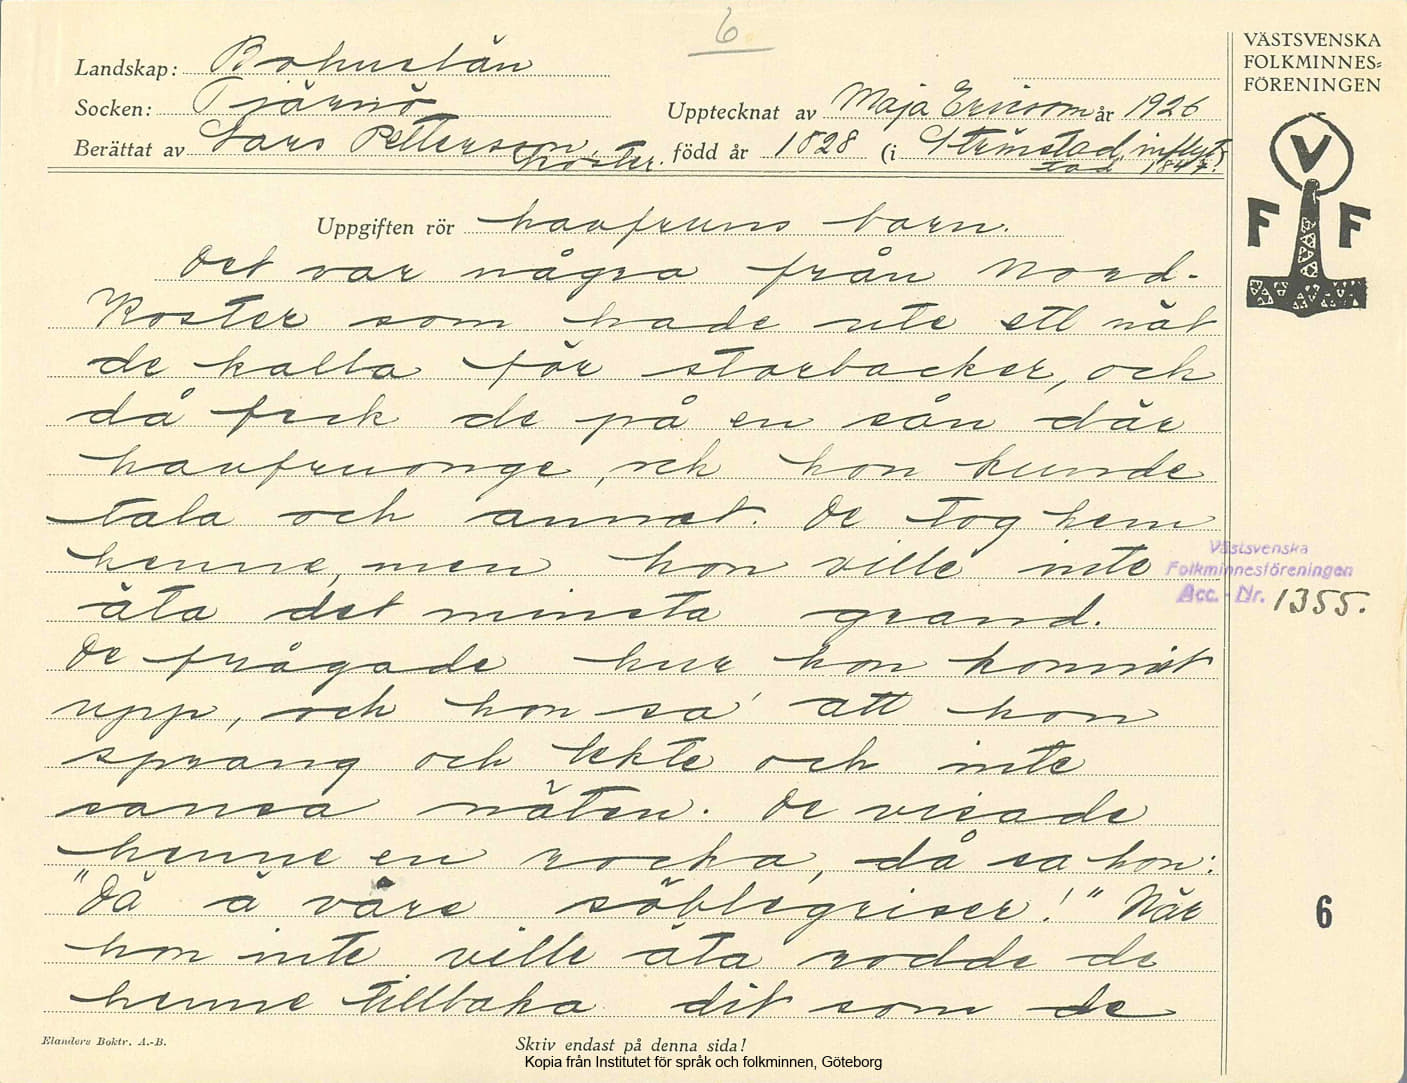 6
VÄSTSVENSKA
FOLKMINNES=
FÖRENINGEN
Landskap: Bohuslän
Socken: Tjärnö
Upptecknat av Maja Ericson år 1926
Berättat av Lars Petterson, Koster. född år 1828 (i Strömstad, inflyttad 1847.
V
F F
Uppgiften rör haafruns barn.
Det var några från Nord-
Koster som hade ute ett nät
de kalla för storbacker, och
då feck de på en sån där
haafruonge, och hon kunde
tala och annat. De tog hem
henne, men hon ville inte
äta det minsta grand.
De frågade hur hon kommit
upp, och hon sa' att hon
sprang och lekte och inte
sansa näten. De visade
henne en rocka, då sa hon:
"Dä ä våre söblegriser!" När
hon inte ville äta rodde de
henne tillbaka dit som de
Västsvenska
Folkminnesföreningen
Acc. - Nr. 1355.
6
Elanders Boktr. A.-B.
Skriv endast på denna sida!
Kopia från Institutet för språk och folkminnen, Göteborg